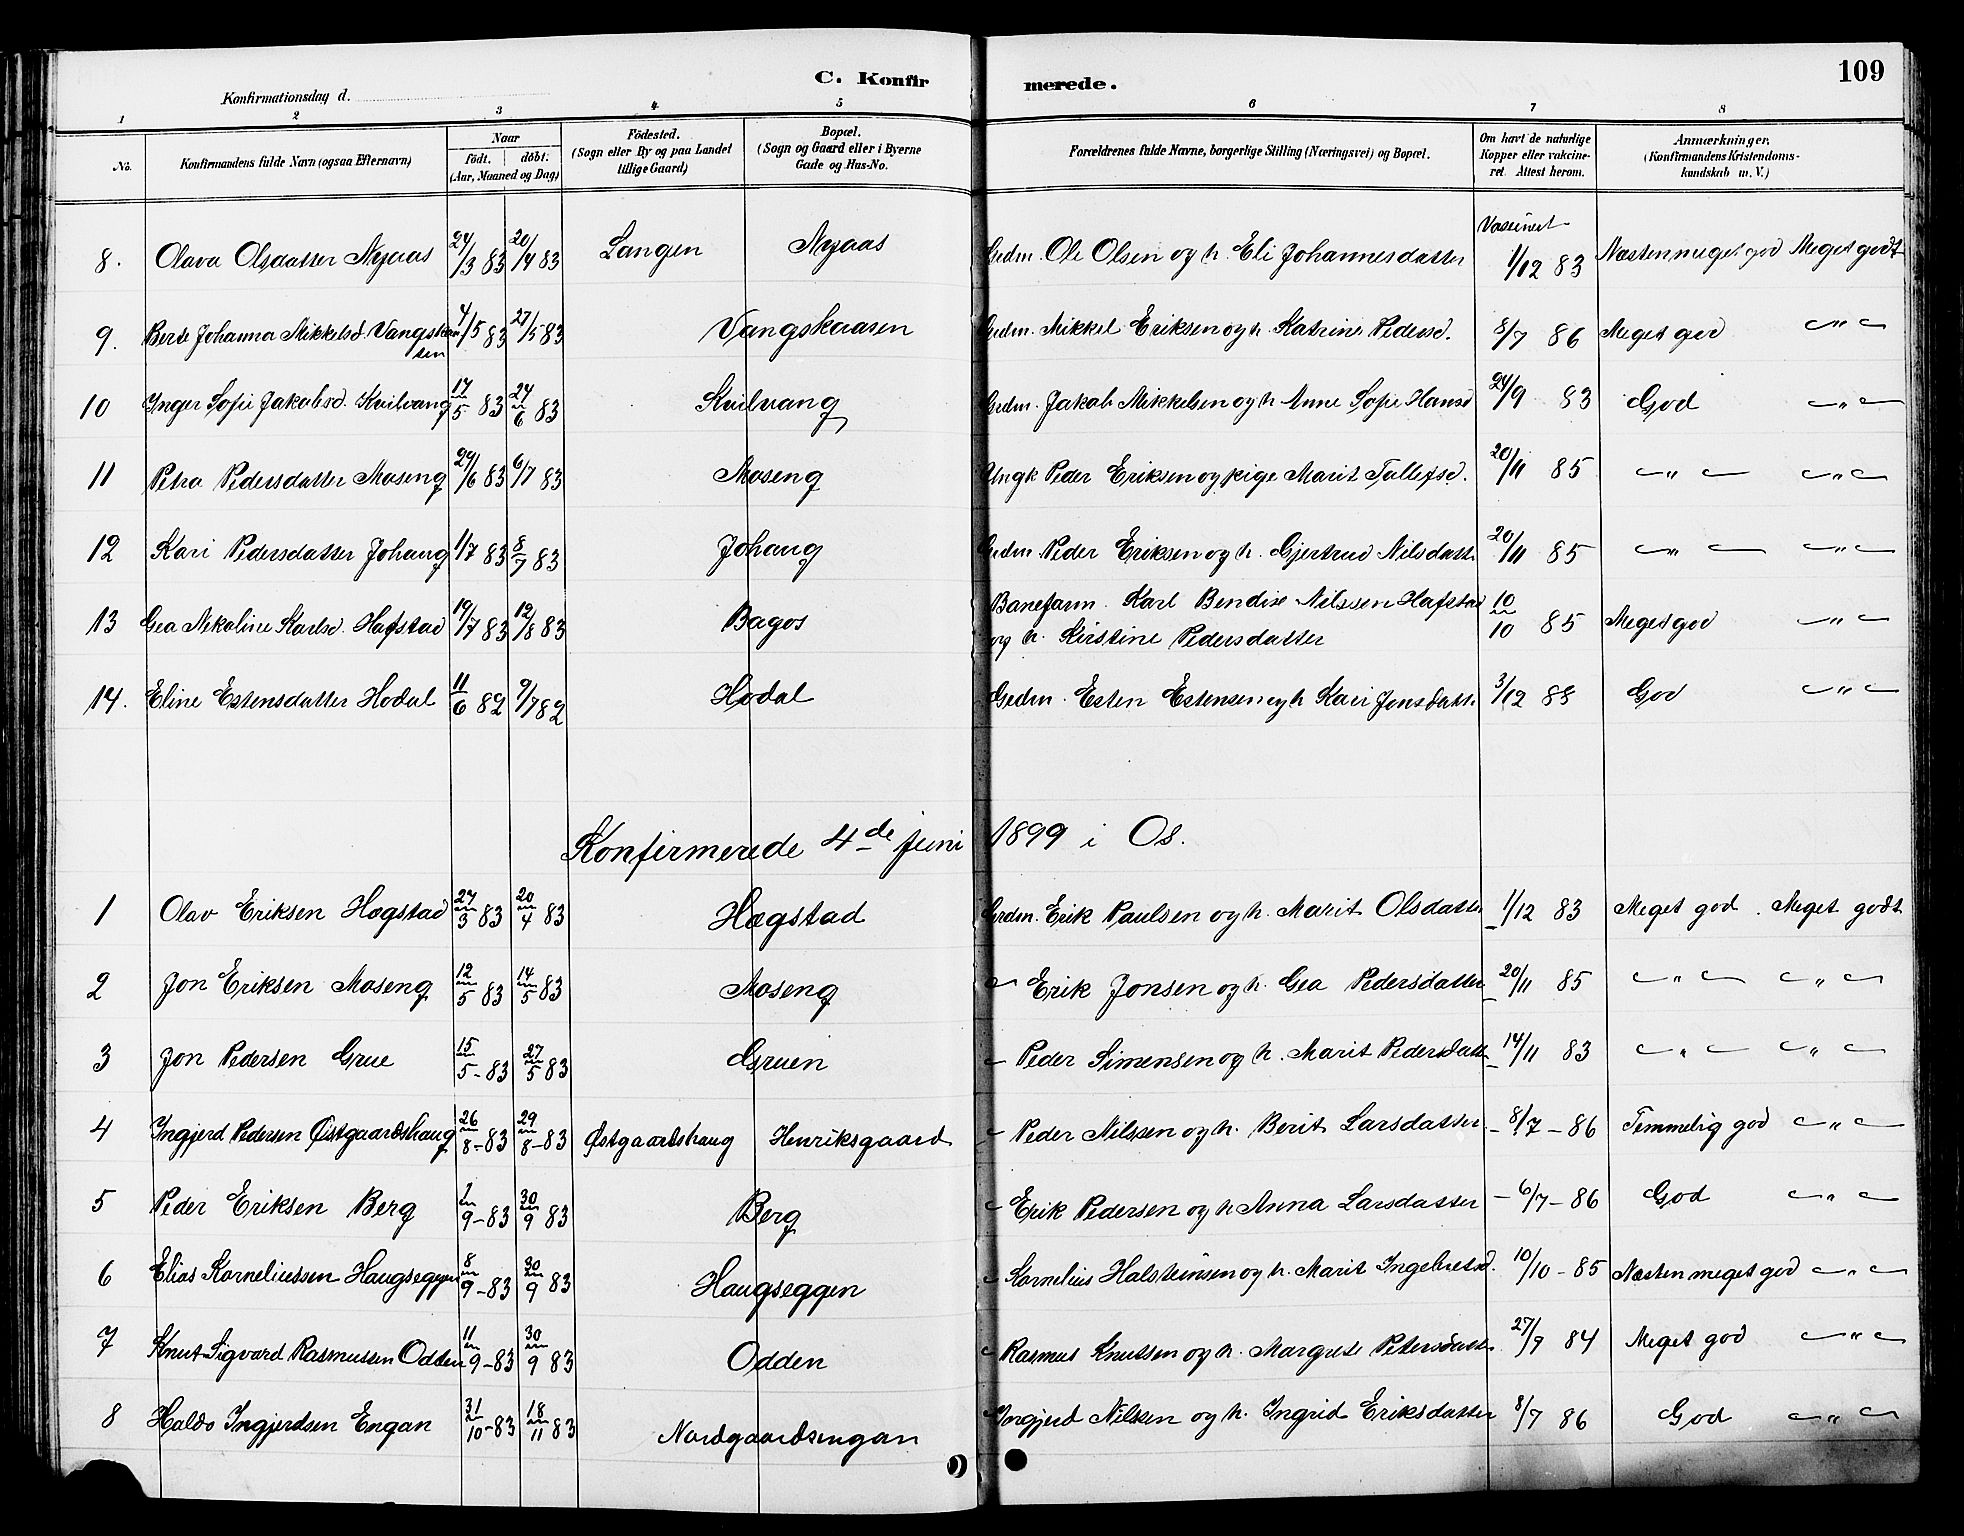 C. Konfirmerede. 109
Konfirmationsdag d.
1 2 3 4 5 6 7 8
No. Konfirmandens fulde Navn (ogsaa Efternavn) Naar født. døbt. (Aar, Maaned og Dag) Fødested. (Sogn eller By og paa Landet tillige Gaard) Bopæl. (Sogn og Gaard eller i Byerne Gade og Hus-No. Forældrenes fulde Navne, borgerlige Stilling (Næringsvei) og Bopæl. Om havt de naturlige Kopper eller vakcineret. Attest herom. Anmærkninger. (Konfirmandens Kristendomskundskab m. V.)
8. Olava Olsdatter Nyaas 24/3 83 20/4 83 Langen Nyaas Grdm. Ole Olsen og h. Eli Johannesdatter Vaccineret 1/12 83 Næsten meget god Meget godt
9. Berte Johanna Mikkelsd. Vangskaasen 4/5 83 27/5 83 Vangskaasen Grdm. Mikkel Eriksen og h. Katrine Pedersd. 8/7 86 Meget god — " —
10 Inger Sofie Jakobsd. Kvilvang 17/5 83 24/6 83 Kvilvang Grdm. Jakob Mikkelsen og h Anne Sofie Hansd 24/9 83 God — " —
11 Petra Pedersdatter Moseng 29/6 83 6/7 83 Moseng Ungk Peder Eriksen og pige Marit Tollefsd. 20/11 85 — " — — " —
12 Kari Pedersdatter Johaug 1/7 83 8/7 83 Johaug Grdm Peder Eriksen og h. Gjertrud Nilsdatt 20/11 85 — " — — " —
13 Gea Nikoline Karlsd. Hafstad 19/7 83 12/8 83 Bagos Baneform. Karl Bendix Nilssen Hafstad og h. Kirstine Pedersdatter 10/10 85 Meget god — " —
14. Eline Estensdatter Hodal 11/6 82 9/7 82 Hodal Grdm. Esten Estensen og h Kari Jonsdatt 3/12 88 God — " —
Konfirmerede 4de Juni 1899 i Os.
1 Olav Eriksen Hogstad 27/3 83 20/4 83 Hogstad Grdm. Erik Paulsen og h. Marit Olsdatter 1/12 83 Meget god. Meget godt
2 Jon Eriksen Moseng 12/5 83 14/5 83 Moseng — Erik Jonsen og h. Gea Pedersdatter 20/11 85 — " — — " —
3 Jon Pedersen Grue 15/5-83 27/5 83 Gruen — Peder Simensen og h. Marit Pedersdatt 14/11 83 — " — — " —
4 Ingjerd Pedersen Østgaardshaug 26/8-83 29/8-83 Østgaardshaug Henriksgaard — Peder Nilssen og h. Berit Larsdatter — 8/7 - 86 Temmelig god — " —
5 Peder Eriksen Berg 2/9-83 30/9 83 Berg — Erik Pedersen og h Anna Larsdatter — 6/7 - 86 God — " —
6 Elias Korneliussen Haugseggen 8/9-83 30/9 83 Haugseggen — Kornelius Halsteinsen og h. Marit Ingebretsd. 10/10 - 85 Næsten meget god — " —
7 Knut Sigvard Rasmussen Odden 11/9-83 30/9 83 Odden — Rasmus Knutssen og h. Margrete Petersdatt 27/9 84 Meget god — " —
8 Haldo Ingjerdsen Engan 31/10-83 18/11 83 Nordgaardsengan Ingjerd Nilsen og h. Ingrid Eriksdatter 8/7 86 God — " —